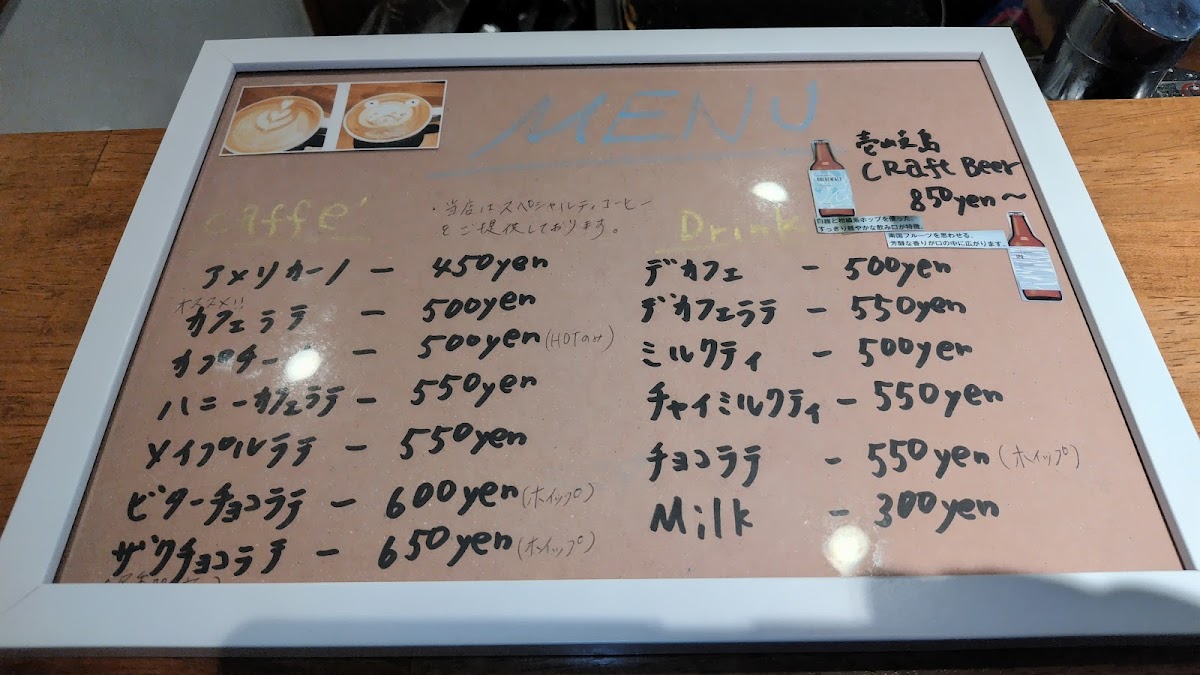 MENU
壱岐之島
CRaft Beer
850yen～
白麹と柑橘系ホップを使った、
すっきり軽やかな飲み口が特徴。
南国フルーツを思わせる、
芳醇な香りが口の中に広がります。
caffe'
・当店はスペシャルティコーヒー
をご提供しております。
アメリカーノ － 450yen
オススメ!!
カフェラテ － 500yen
カプチーノ － 500yen (HOTのみ)
ハニーカフェラテ － 550yen
メイプルラテ － 550yen
ビターチョコラテ － 600yen (ホイップ)
ザクチョコラテ － 650yen (ホイップ)
Drink
デカフェ － 500yen
デカフェラテ － 550yen
ミルクティ － 500yen
チャイミルクティ － 550yen
チョコラテ － 550yen (ホイップ)
Milk － 300yen